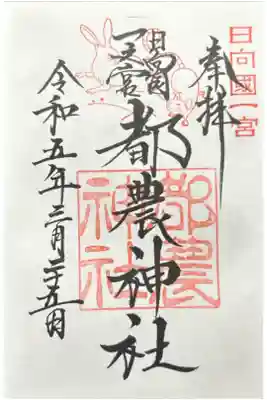 日向國一宮
奉拝
日向国
一之宮
都農神社
都農神社
令和五年三月二十五日